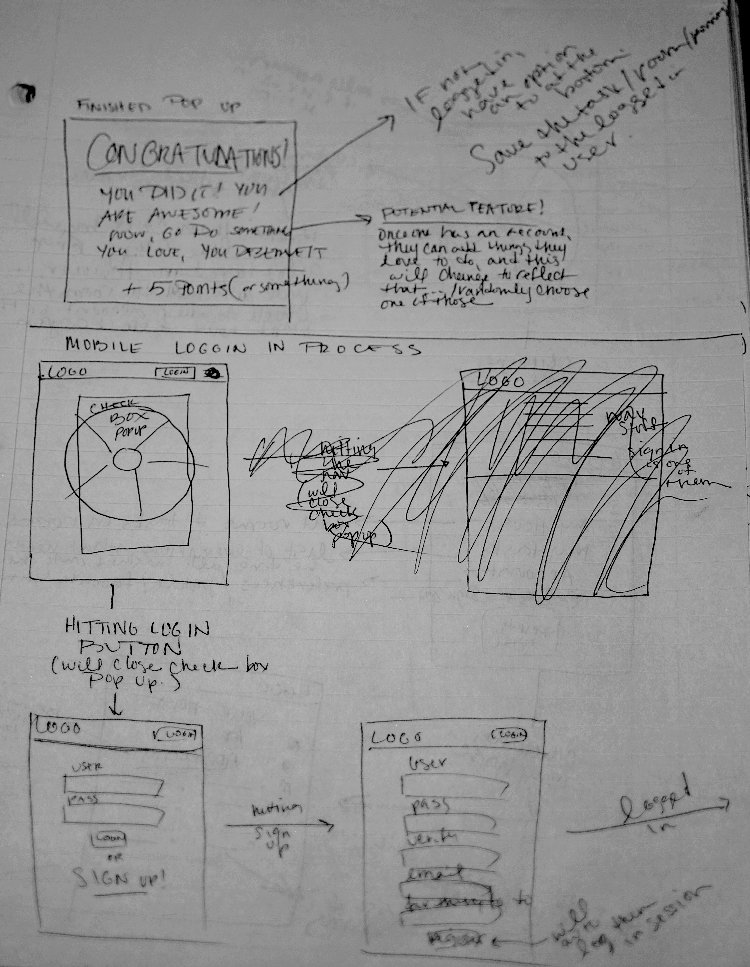 FINISHED POP UP
CONGRATULATIONS!
YOU DID IT! YOU
ARE AWESOME!
NOW, GO DO SOMETHING
YOU LOVE, YOU DESERVE IT
+ 5 Points (or something)
IF not
logged in,
have option
to at the
bottom.
Save the task/room/
to the logged in
user.
POTENTIAL FEATURE!
Once one has an account,
they can add things they
love to do, and this
will change to reflect
that.../randomly choose
one of those
MOBILE LOGGIN IN PROCESS
LOGO LOGIN
CHECK
BOX
POPUP
hitting
the
nav
will
close
check
box
popup
LOGO
nav
stuff
sign in
is one
of
them
HITTING LOG IN
BUTTON
(will close check box
Pop up.)
LOGO LOGIN
USER
PASS
LOGIN
OR
SIGN UP!
hitting
sign
up
LOGO LOGIN
user
pass
verify
email
to
logged
in
will
auto
log them
in session